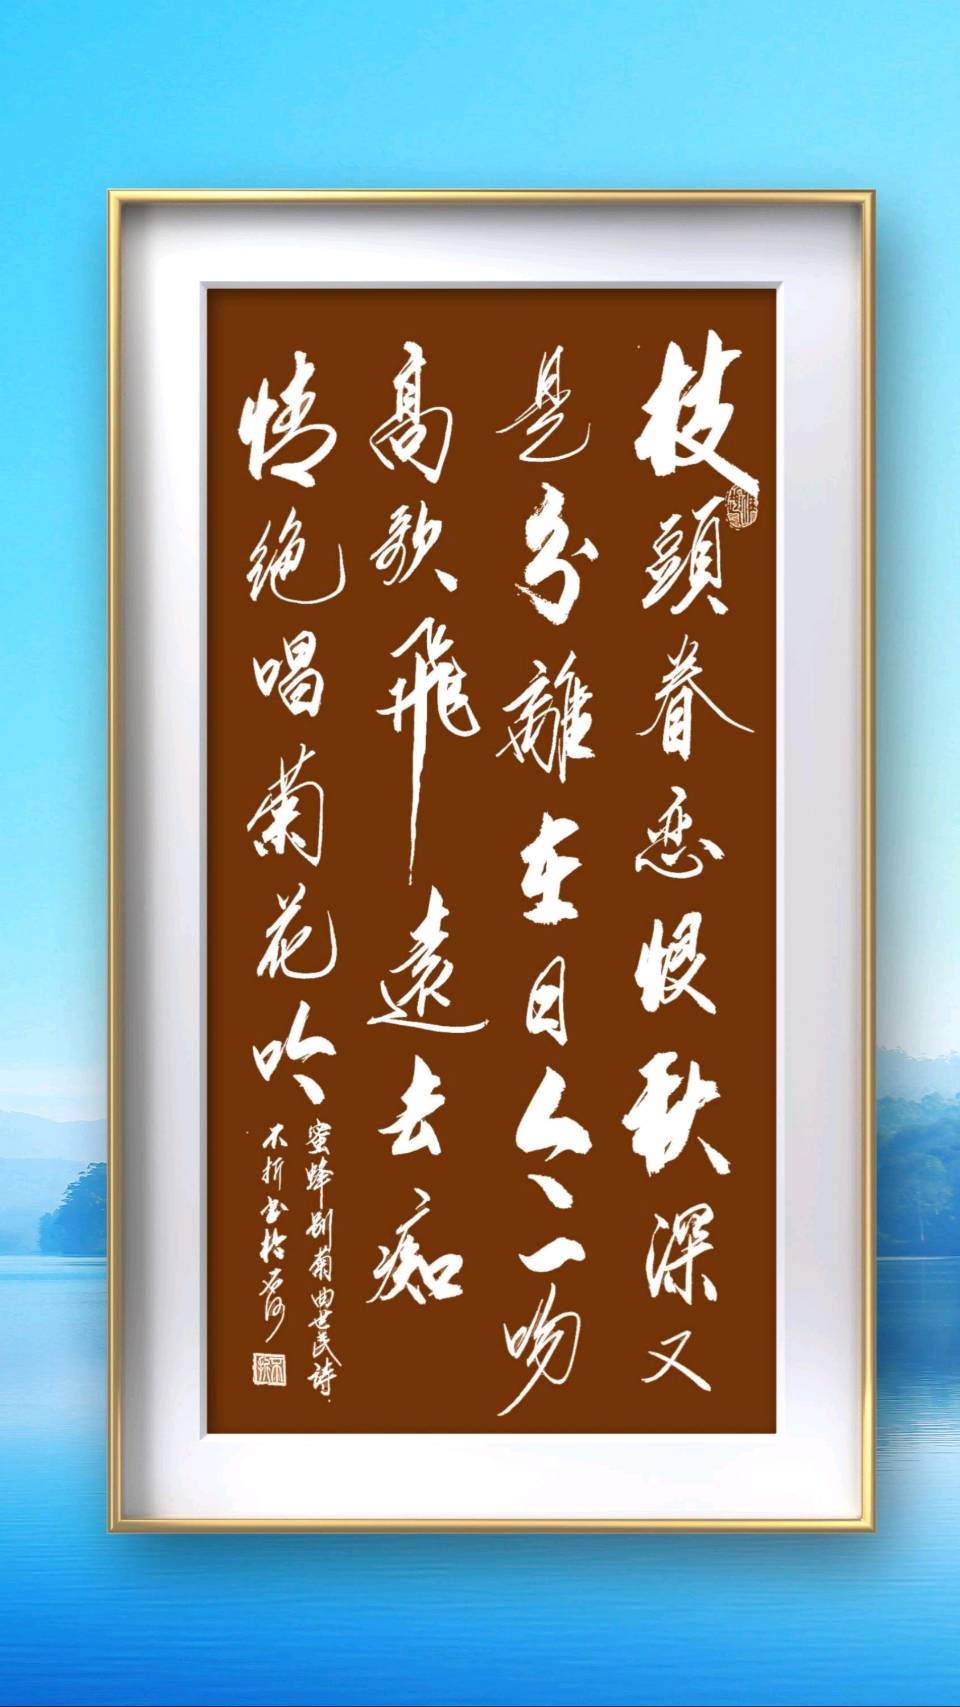 枝頭眷恋恨秋深又
是分離在日今一吻
高歌飛遠去痴
情绝唱菊花吟
蜜蜂别菊曲世民詩
不折书於